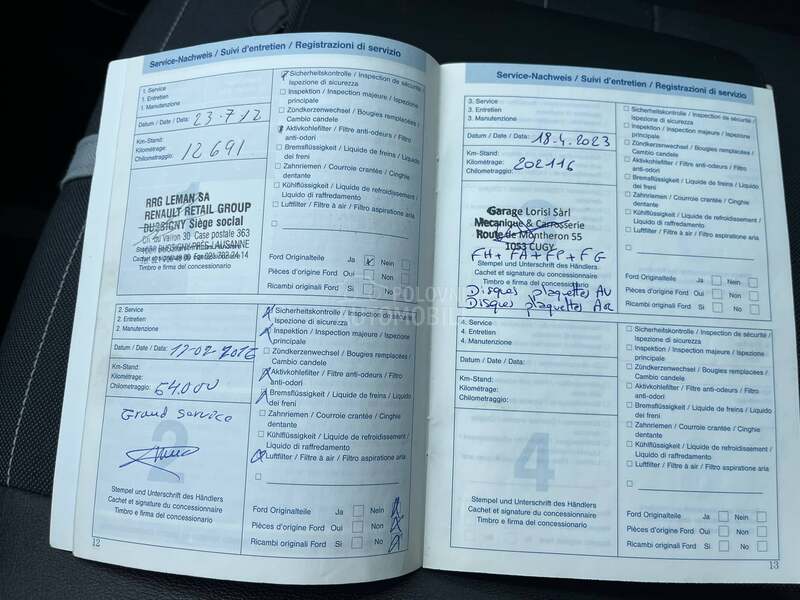 Service-Nachweis / Suivi d'entretien / Registrazioni di servizio
1. Service
1. Entretien
1. Manutenzione
Datum / Date / Data: 23.7.12
Km-Stand:
Kilométrage:
Chilometraggio: 12691
RRG LEMAN SA
RENAULT RETAIL GROUP
BUSSIGNY Siège social
Ch. du Vallon 30 Case postale 363
BUSSIGNY-PRÈS-LAUSANNE
Timbro e firma del concessionario
Sicherheitskontrolle / Inspection de sécurité /
Ispezione di sicurezza
Inspektion / Inspection majeure / Ispezione
principale
Zündkerzenwechsel / Bougies remplacées /
Cambio candele
Aktivkohlefilter / Filtre anti-odeurs / Filtro
anti-odori
Bremsflüssigkeit / Liquide de freins / Liquido
dei freni
Zahnriemen / Courroie crantée / Cinghie
dentante
Kühlflüssigkeit / Liquide de refroidissement /
Liquido di raffreddamento
Luftfilter / Filtre à air / Filtro aspirazione aria
Ford Originalteile Ja Nein
Pièces d'origine Ford Oui Non
Ricambi originali Ford Si No
2. Service
2. Entretien
2. Manutenzione
Datum / Date / Data: 17-02-2016
Km-Stand:
Kilométrage:
Chilometraggio: 54.000
Grand Service
2
Stempel und Unterschrift des Händlers
Cachet et signature du concessionnaire
Timbro e firma del concessionario
Sicherheitskontrolle / Inspection de sécurité /
Ispezione di sicurezza
Inspektion / Inspection majeure / Ispezione
principale
Zündkerzenwechsel / Bougies remplacées /
Cambio candele
Aktivkohlefilter / Filtre anti-odeurs / Filtro
anti-odori
Bremsflüssigkeit / Liquide de freins / Liquido
dei freni
Zahnriemen / Courroie crantée / Cinghie
dentante
Kühlflüssigkeit / Liquide de refroidissement /
Liquido di raffreddamento
Luftfilter / Filtre à air / Filtro aspirazione aria
Ford Originalteile Ja Nein
Pièces d'origine Ford Oui Non
Ricambi originali Ford Si No
12
Service-Nachweis / Suivi d'entretien / Registrazioni di servizio
3. Service
3. Entretien
3. Manutenzione
Datum / Date / Data: 18.4.2023
Km-Stand:
Kilométrage:
Chilometraggio: 202116
Garage Lorisi Sàrl
Mecanique & Carrosserie
Route de Montheron 55
1053 CUGY
FH + FA + FP + FG
Stempel und Unterschrift des Händlers
Cachet et signature du concessionnaire
Timbro e firma del concessionario
Disques plaquettes AV
Disques plaquettes AR
Sicherheitskontrolle / Inspection de sécurité /
Ispezione di sicurezza
Inspektion / Inspection majeure / Ispezione
principale
Zündkerzenwechsel / Bougies remplacées /
Cambio candele
Aktivkohlefilter / Filtre anti-odeurs / Filtro
anti-odori
Bremsflüssigkeit / Liquide de freins / Liquido
dei freni
Zahnriemen / Courroie crantée / Cinghie
dentante
Kühlflüssigkeit / Liquide de refroidissement /
Liquido di raffreddamento
Luftfilter / Filtre à air / Filtro aspirazione aria
Ford Originalteile Ja Nein
Pièces d'origine Ford Oui Non
Ricambi originali Ford Si No
4. Service
4. Entretien
4. Manutenzione
Datum / Date / Data:
Km-Stand:
Kilométrage:
Chilometraggio:
4
Stempel und Unterschrift des Händlers
Cachet et signature du concessionnaire
Timbro e firma del concessionario
Sicherheitskontrolle / Inspection de sécurité /
Ispezione di sicurezza
Inspektion / Inspection majeure / Ispezione
principale
Zündkerzenwechsel / Bougies remplacées /
Cambio candele
Aktivkohlefilter / Filtre anti-odeurs / Filtro
anti-odori
Bremsflüssigkeit / Liquide de freins / Liquido
dei freni
Zahnriemen / Courroie crantée / Cinghie
dentante
Kühlflüssigkeit / Liquide de refroidissement /
Liquido di raffreddamento
Luftfilter / Filtre à air / Filtro aspirazione aria
Ford Originalteile Ja Nein
Pièces d'origine Ford Oui Non
Ricambi originali Ford Si No
13